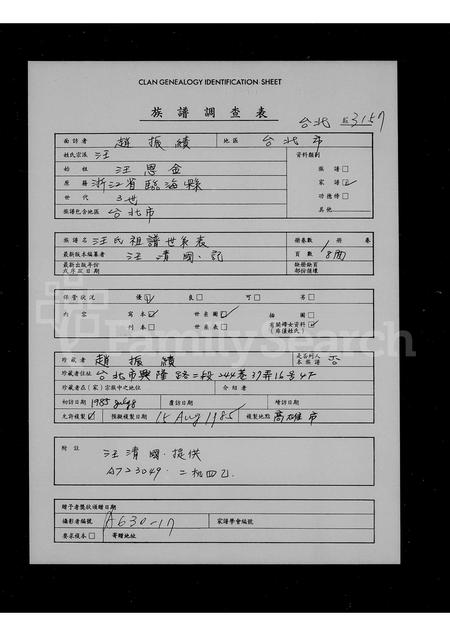 CLAN GENEALOGY IDENTIFICATION SHEET
族譜調查表
台北 3157
面訪者 趙振績 地區 台北市
姓氏宗派 汪 資料類別
始祖 汪恩金 族譜
原籍 浙江省臨海縣 家譜 ✓
世代 3世 功德榜
族譜包含地區 台北市 其他
族譜名 汪氏祖譜世系表 冊卷數 1 冊 卷
最新版本編纂者 汪清國 記 頁數 8
最新出版年份 缺冊缺頁
或序跋日期 部份損壞
保管狀況 優 ✓ 良 可 劣
內容 寫本 ✓ 世系圖 ✓ 插圖
刊本 世系表 有關婦女資料 ✓
(非僅姓氏)
FamilySearch
珍藏者 趙振績 是否列入本族譜 否
珍藏者住址 台北市興隆路二段244巷37弄16号4F
珍藏者在(家)宗族中之地位 介紹者
初訪日期 1985 覆訪日期 增訪日期
允許複製 ✓ 預擬複製日期 15 Aug 1985 複製地點 高雄市
附註 汪清國提供
A723049. 二
贈予者獎狀頒贈日期
攝影者編號 A630-17 家譜學會編號
要求複本 寄贈地址